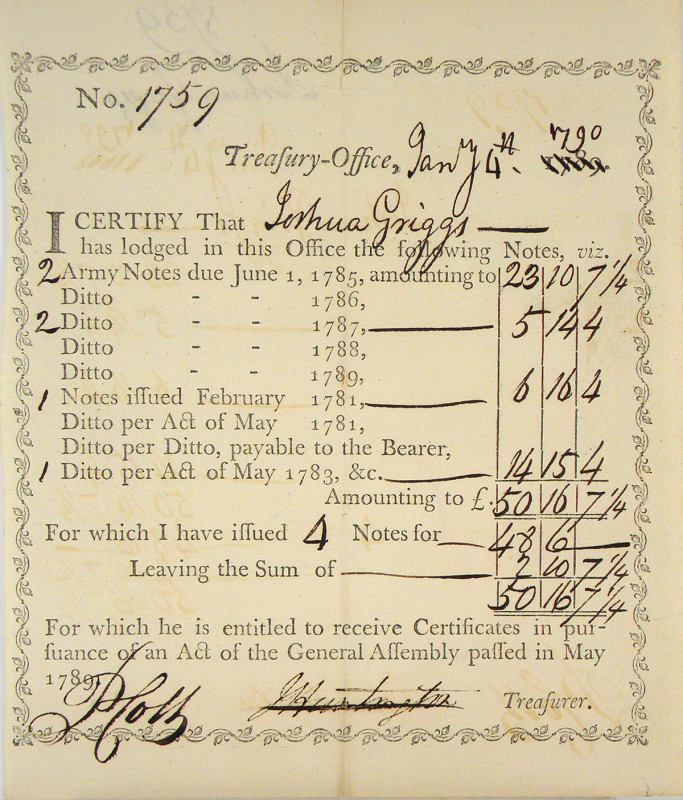 No. 1759
Treasury-Office, Jany 4th. 1790
I CERTIFY That Joshua Griggs
has lodged in this Office the following Notes, viz.
2 Army Notes due June 1, 1785, amounting to 23 10 7 1/4
Ditto - - 1786,
2 Ditto - - 1787, 5 14 4
Ditto - - 1788,
Ditto - - 1789,
1 Notes iſſued February 1781, 6 16 4
Ditto per Act of May 1781,
Ditto per Ditto, payable to the Bearer,
1 Ditto per Act of May 1783, &c. 14 15 4
Amounting to £. 50 16 7 1/4
For which I have iſſued 4 Notes for 48 6
Leaving the Sum of 2 10 7 1/4
50 16 7 1/4
For which he is entitled to receive Certificates in pur-
ſuance of an Act of the General Aſſembly paſſed in May
1789.
P Colt J Huntington Treaſurer.